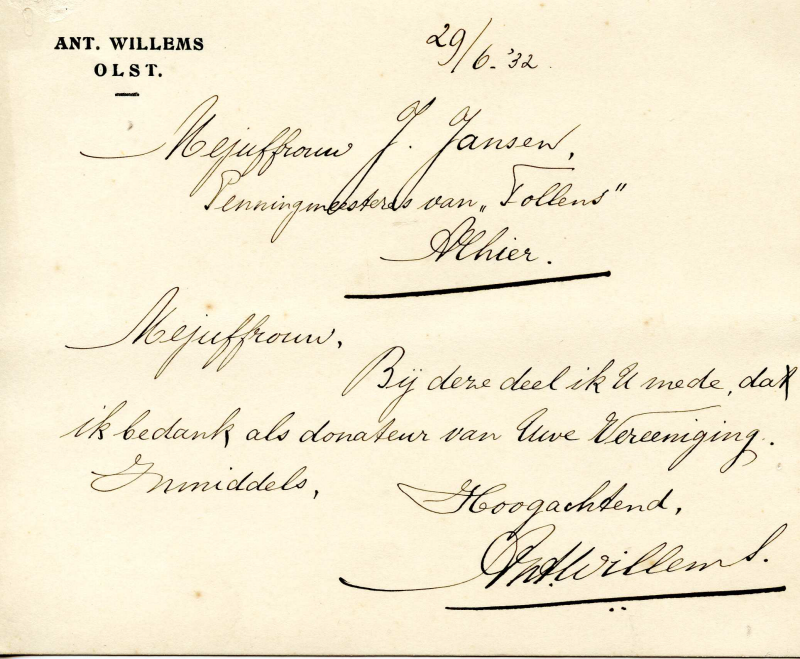 ANT. WILLEMS
OLST.
29/6-'32.
Mejuffrouw J. Jansen,
Penningmeesteres van „Tollens"
Alhier.
Mejuffrouw,
Bij deze deel ik U mede, dat
ik bedank als donateur van Uwe Vereeniging.
Inmiddels,
Hoogachtend,
Ant. Willems.